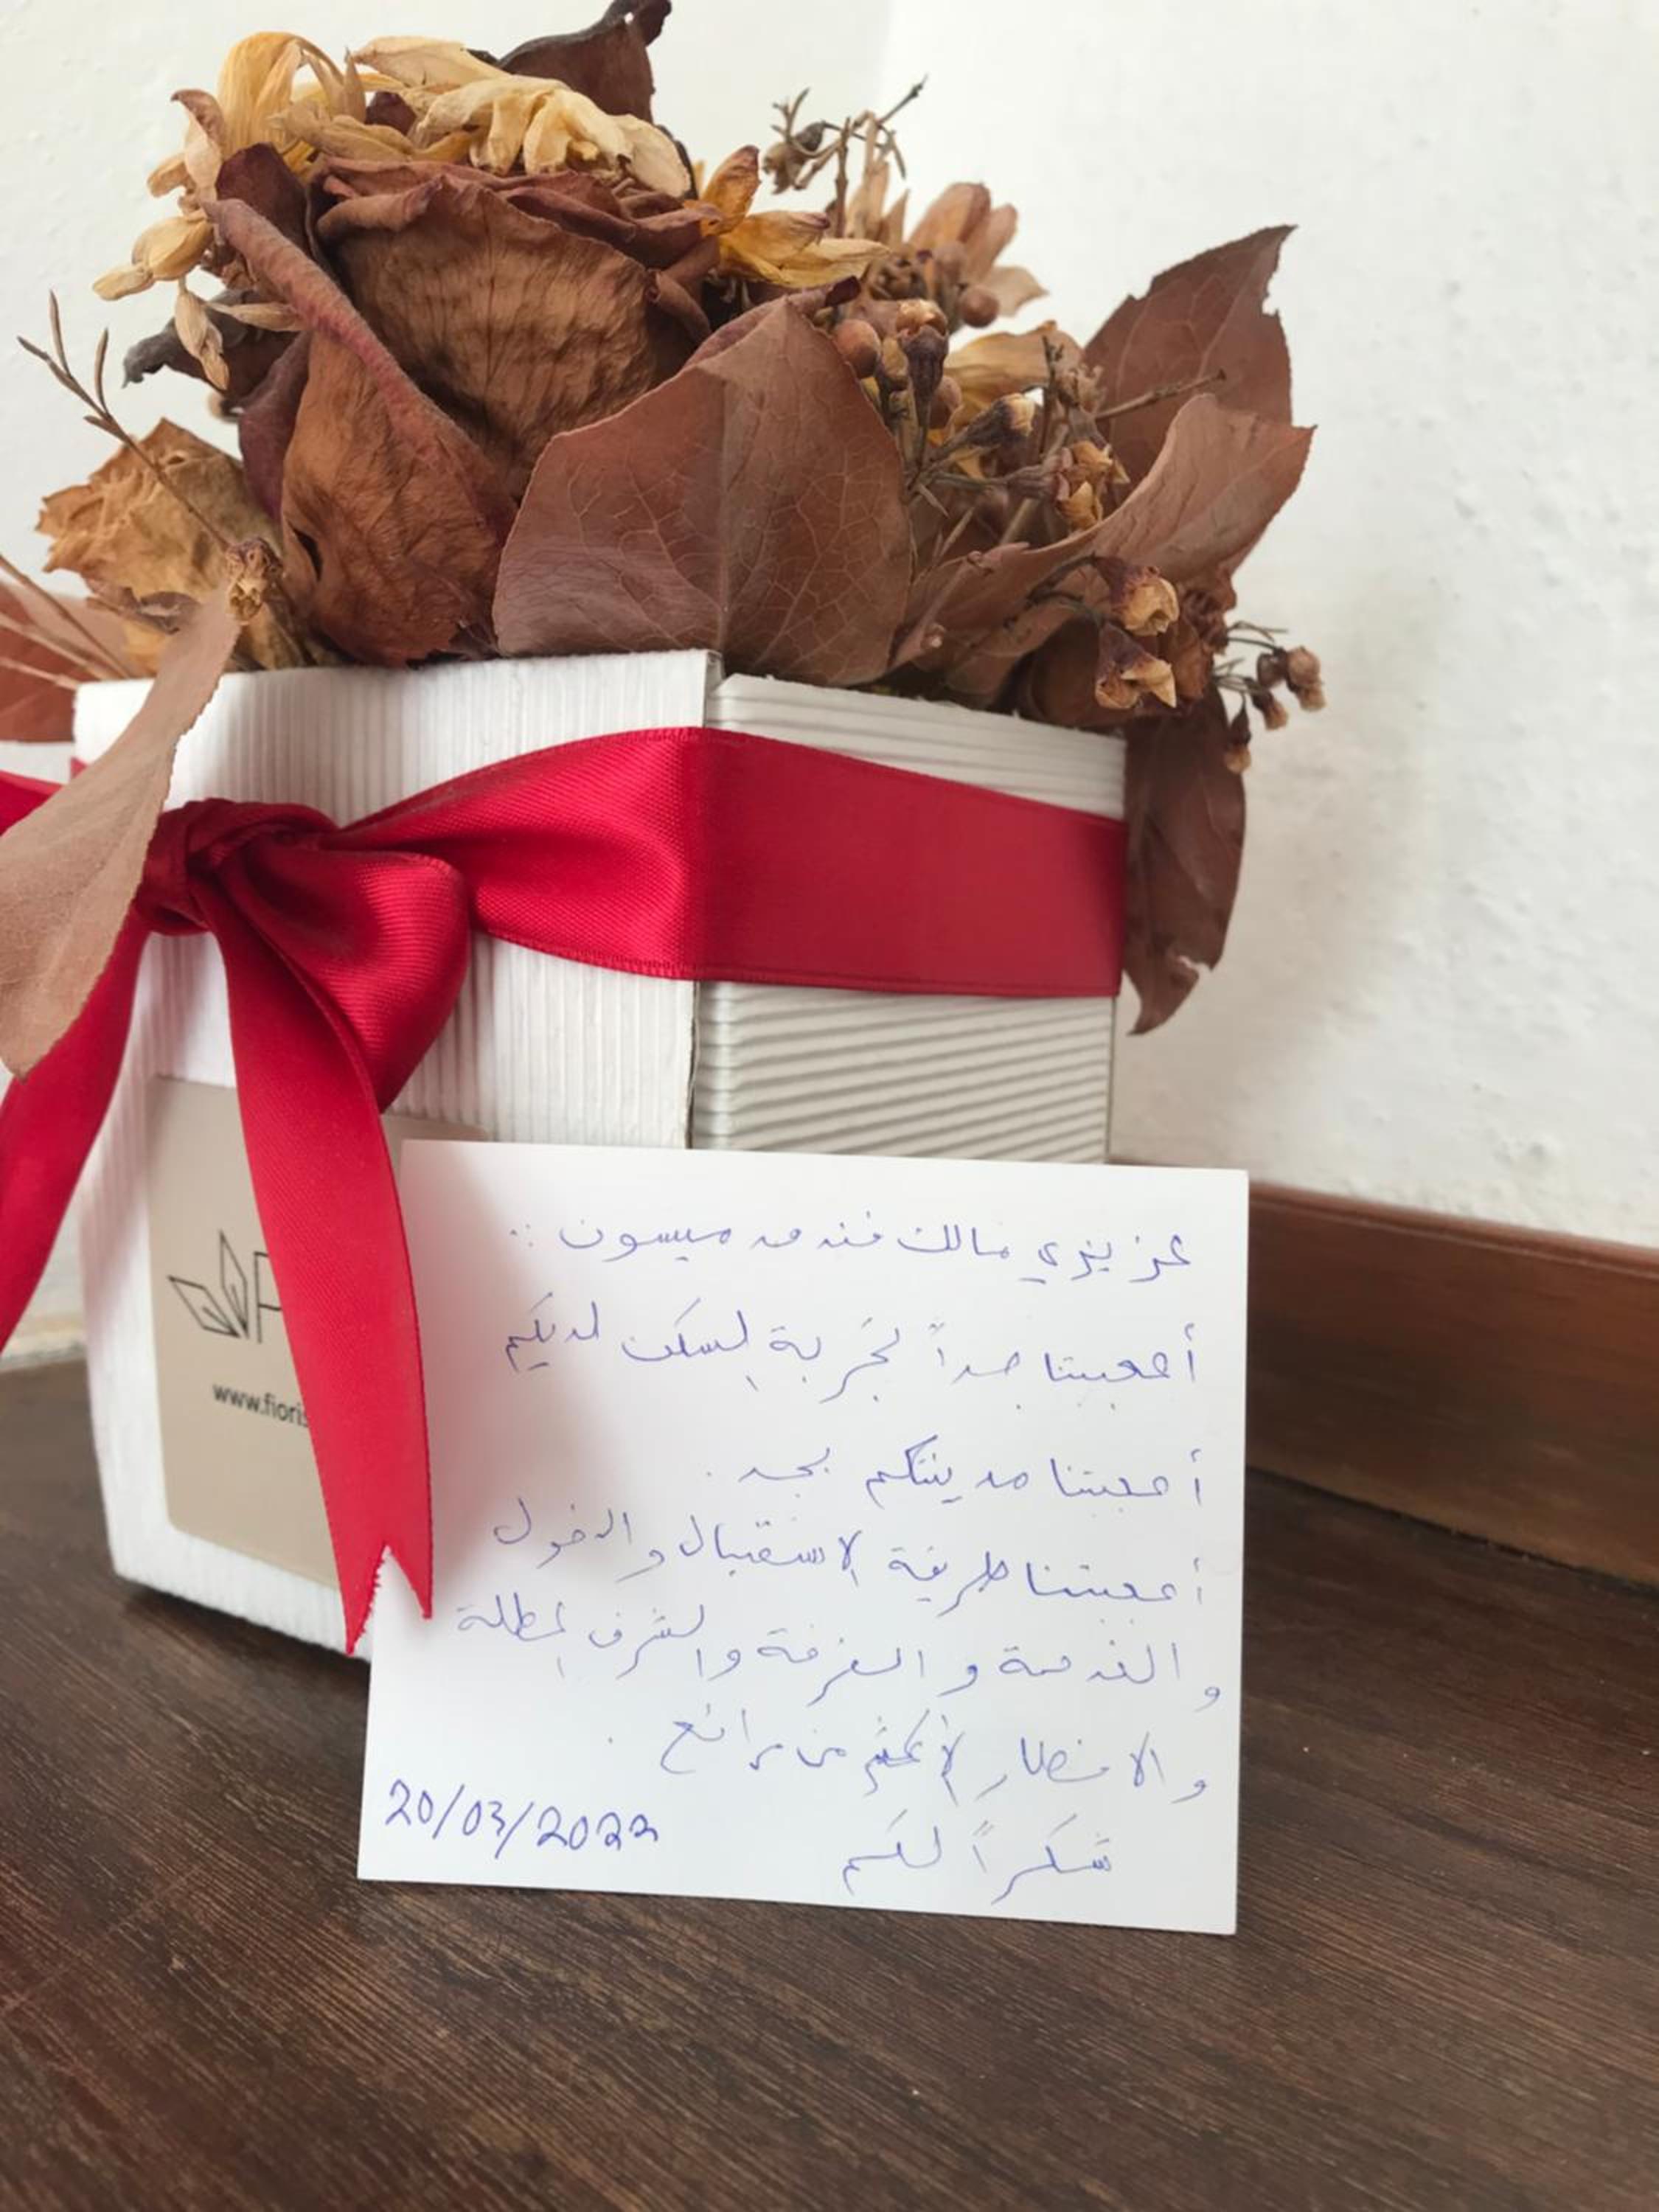 عزيزي مالك فندق ميسون :
أعجبتنا جداً تجربة السكن لديكم
أعجبتنا مدينتكم بجد .
أعجبتنا طريقة الاستقبال والدخول
والخدمة والغرفة والشرف المطلة
والافطار لأكثر من رائع .
شكراً لكم
20/03/2022
www.fioris